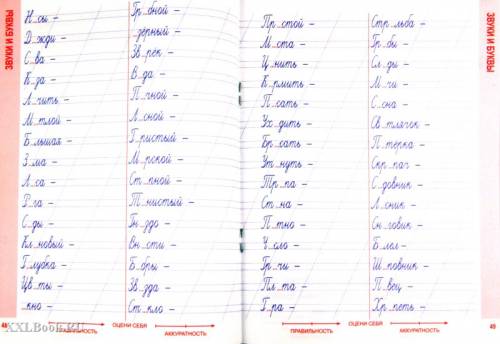 ЗВУКИ И БУКВЫ
Н..сы –
Д..жди –
С..ва –
К..за –
Л..чить –
М..тлой –
Б..льшая –
З..ма –
Л..са –
Р..га –
С..ды –
Кл..новый –
Г..лубка –
Цв..ты –
..кно –
Гр..бной –
..зёрный –
Зв..рёк –
В..да –
П..чной –
Л..сной –
Г..ристый –
М..рской –
Ст..пной –
Т..нистый –
Гн..здо –
Вн..сти –
Б..бры –
Зв..зда –
Ст..кло –
48
ПРАВИЛЬНОСТЬ
ОЦЕНИ СЕБЯ
АККУРАТНОСТЬ
XXLBook.RU
Пр..стой –
М..ста –
Ц..нить –
К..рмить –
П..сать –
Ух..дить –
Бр..сать –
Ут..нуть –
Тр..па –
Ст..на –
П..тно –
Ч..сло –
Гр..чи –
Пл..та –
Г..ра –
Стр..льба –
Гр..бы –
Сл..ды –
М..чи –
С..сна –
Св..тлячок –
П..тёрка –
Скр..пач –
С..довник –
Л..сник –
Сн..говик –
Ш..повник –
П..вец –
Хр..петь –
ЗВУКИ И БУКВЫ
ПРАВИЛЬНОСТЬ
ОЦЕНИ СЕБЯ
АККУРАТНОСТЬ
49